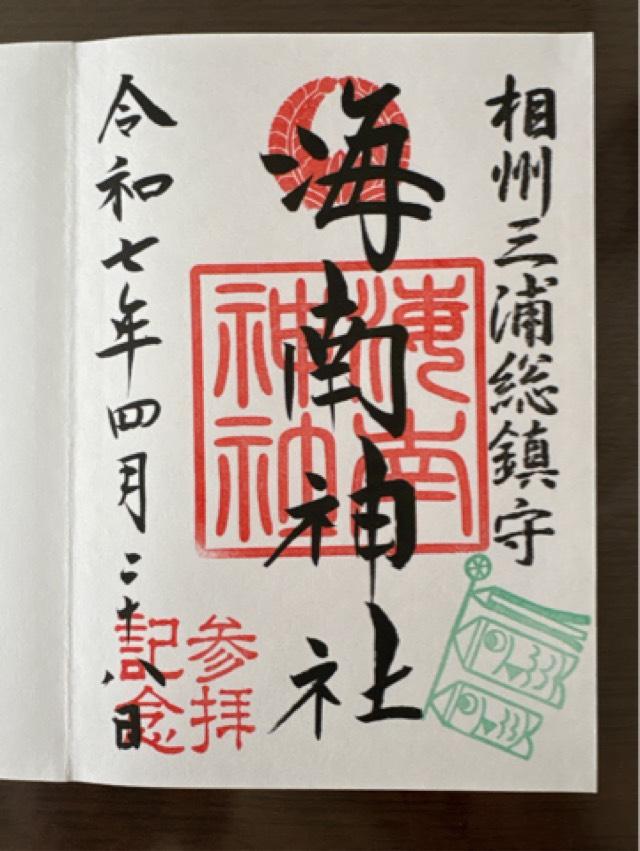 相州三浦総鎮守
海南神社
海南
神社
令和七年四月二十八日
参拝
記念